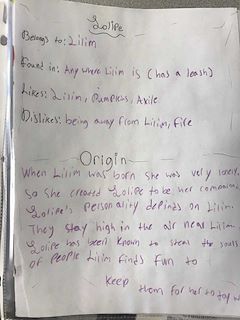 Lolipe
Belongs to: Lilim
Found in: Any where Lilim is (has a leash)
Likes: Lilim, Pumpkins, Axile
Dislikes: being away from Lilim, fire
Origin
When Lilim was born she was very lonely.
So she created Lolipe to be her companion.
Lolipe's personality depinds on Lilim.
They stay high in the air near Lilim.
Lolipe has been known to steal the souls
of people Lilim finds fun to
keep them for her to toy w